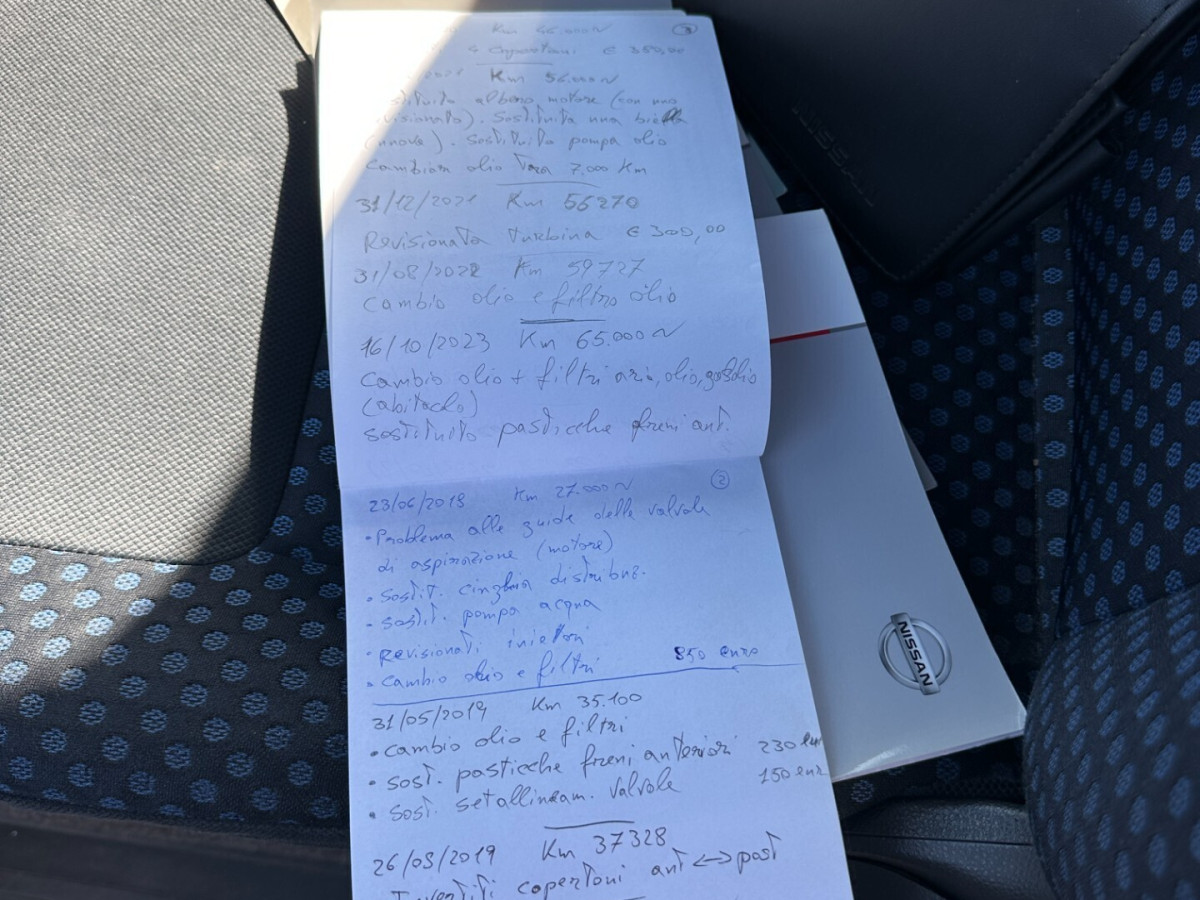 Km 46.000 ~ ③
4 Copertoni € 350,00
2021 Km 56.000 ~
albero motore (con uno
). Sostituita una biella
(nuova). Sostituita pompa olio
Cambiare olio tra 7.000 Km
31/12/2021 Km 56270
Revisionata turbina € 300,00
31/08/2022 Km 59727
Cambio olio e filtro olio
16/10/2023 Km 65.000 ~
Cambio olio + filtri aria, olio, gasolio
(abitacolo)
sostituito pasticche freni ant.
23/06/2018 Km 27.000 ~ ②
• Problema alle guide delle valvole
di aspirazione (motore)
• Sostit. cinghia distribuz.
• Sostit. pompa acqua
• Revisionati iniettori
• Cambio olio e filtri 850 euro
31/05/2019 Km 35.100
• Cambio olio e filtri
• Sost. pasticche freni anteriori 230 eur
• Sost. set allineam. valvole 150 eur
26/09/2019 Km 37328
Invertiti copertoni ant <-> post
NISSAN
NISSAN